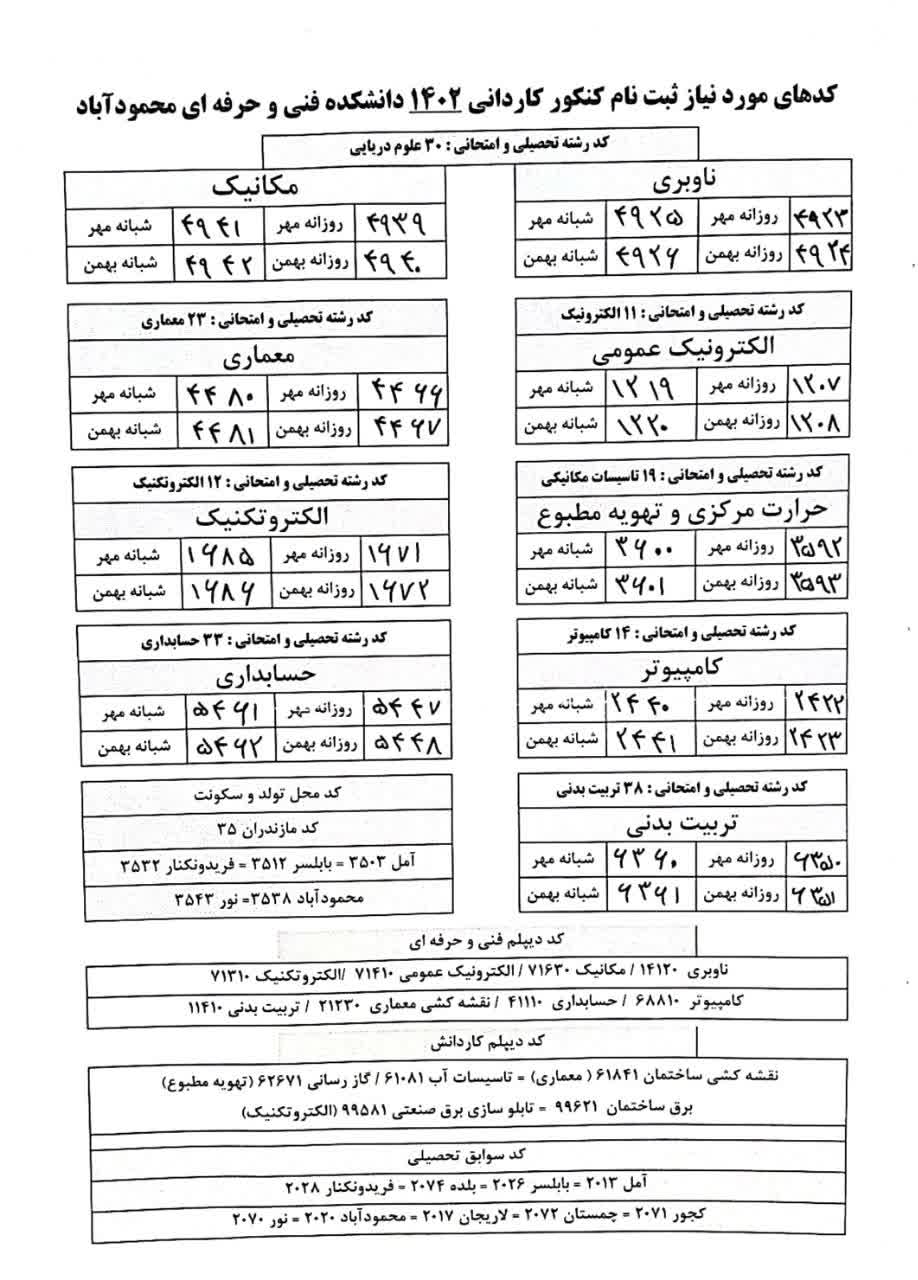 کدهای مورد نیاز ثبت نام کنکور کاردانی ۱۴۰۲ دانشکده فنی و حرفه ای محمودآباد
کد رشته تحصیلی و امتحانی : ۳۰ علوم دریایی
ناوبری
۴۹۲۳ روزانه مهر ۴۹۲۵ شبانه مهر
۴۹۲۴ روزانه بهمن ۴۹۲۶ شبانه بهمن
مکانیک
۴۹۳۹ روزانه مهر ۴۹۴۱ شبانه مهر
۴۹۴۰ روزانه بهمن ۴۹۴۲ شبانه بهمن
کد رشته تحصیلی و امتحانی : ۱۱ الکترونیک
الکترونیک عمومی
۱۲۰۷ روزانه مهر ۱۲۱۹ شبانه مهر
۱۲۰۸ روزانه بهمن ۱۲۲۰ شبانه بهمن
کد رشته تحصیلی و امتحانی : ۲۳ معماری
معماری
۴۴۶۶ روزانه مهر ۴۴۸۰ شبانه مهر
۴۴۶۷ روزانه بهمن ۴۴۸۱ شبانه بهمن
کد رشته تحصیلی و امتحانی : ۱۹ تاسیسات مکانیکی
حرارت مرکزی و تهویه مطبوع
۳۵۹۲ روزانه مهر ۳۶۰۰ شبانه مهر
۳۵۹۳ روزانه بهمن ۳۶۰۱ شبانه بهمن
کد رشته تحصیلی و امتحانی : ۱۲ الکتروتکنیک
الکتروتکنیک
۱۶۷۱ روزانه مهر ۱۶۸۵ شبانه مهر
۱۶۷۲ روزانه بهمن ۱۶۸۶ شبانه بهمن
کد رشته تحصیلی و امتحانی : ۱۴ کامپیوتر
کامپیوتر
۲۴۲۲ روزانه مهر ۲۴۴۰ شبانه مهر
۲۴۲۳ روزانه بهمن ۲۴۴۱ شبانه بهمن
کد رشته تحصیلی و امتحانی : ۳۳ حسابداری
حسابداری
۵۴۴۷ روزانه مهر ۵۴۶۱ شبانه مهر
۵۴۴۸ روزانه بهمن ۵۴۶۲ شبانه بهمن
کد رشته تحصیلی و امتحانی : ۳۸ تربیت بدنی
تربیت بدنی
۶۳۵۰ روزانه مهر ۶۳۶۰ شبانه مهر
۶۳۵۱ روزانه بهمن ۶۳۶۱ شبانه بهمن
کد محل تولد و سکونت
کد مازندران ۳۵
آمل ۳۵۰۳ = بابلسر ۳۵۱۲ = فریدونکنار ۳۵۳۲
محمودآباد ۳۵۳۸= نور ۳۵۴۳
کد دیپلم فنی و حرفه ای
ناوبری ۱۴۱۲۰ / مکانیک ۷۱۶۳۰ / الکترونیک عمومی ۷۱۴۱۰ /الکتروتکنیک ۷۱۳۱۰
کامپیوتر ۶۸۸۱۰ / حسابداری ۴۱۱۱۰ / نقشه کشی معماری ۲۱۲۳۰ / تربیت بدنی ۱۱۴۱۰
کد دیپلم کاردانش
نقشه کشی ساختمان ۶۱۸۴۱ ( معماری) = تاسیسات آب ۶۱۰۸۱ / گاز رسانی ۶۲۶۷۱ (تهویه مطبوع)
برق ساختمان ۹۹۶۲۱ = تابلو سازی برق صنعتی ۹۹۵۸۱ (الکتروتکنیک)
کد سوابق تحصیلی
آمل ۲۰۱۳ = بابلسر ۲۰۲۶ = بلده ۲۰۷۴ = فریدونکنار ۲۰۲۸
کجور ۲۰۷۱ = چمستان ۲۰۷۲ = لاریجان ۲۰۱۷ = محمودآباد ۲۰۲۰ = نور ۲۰۷۰